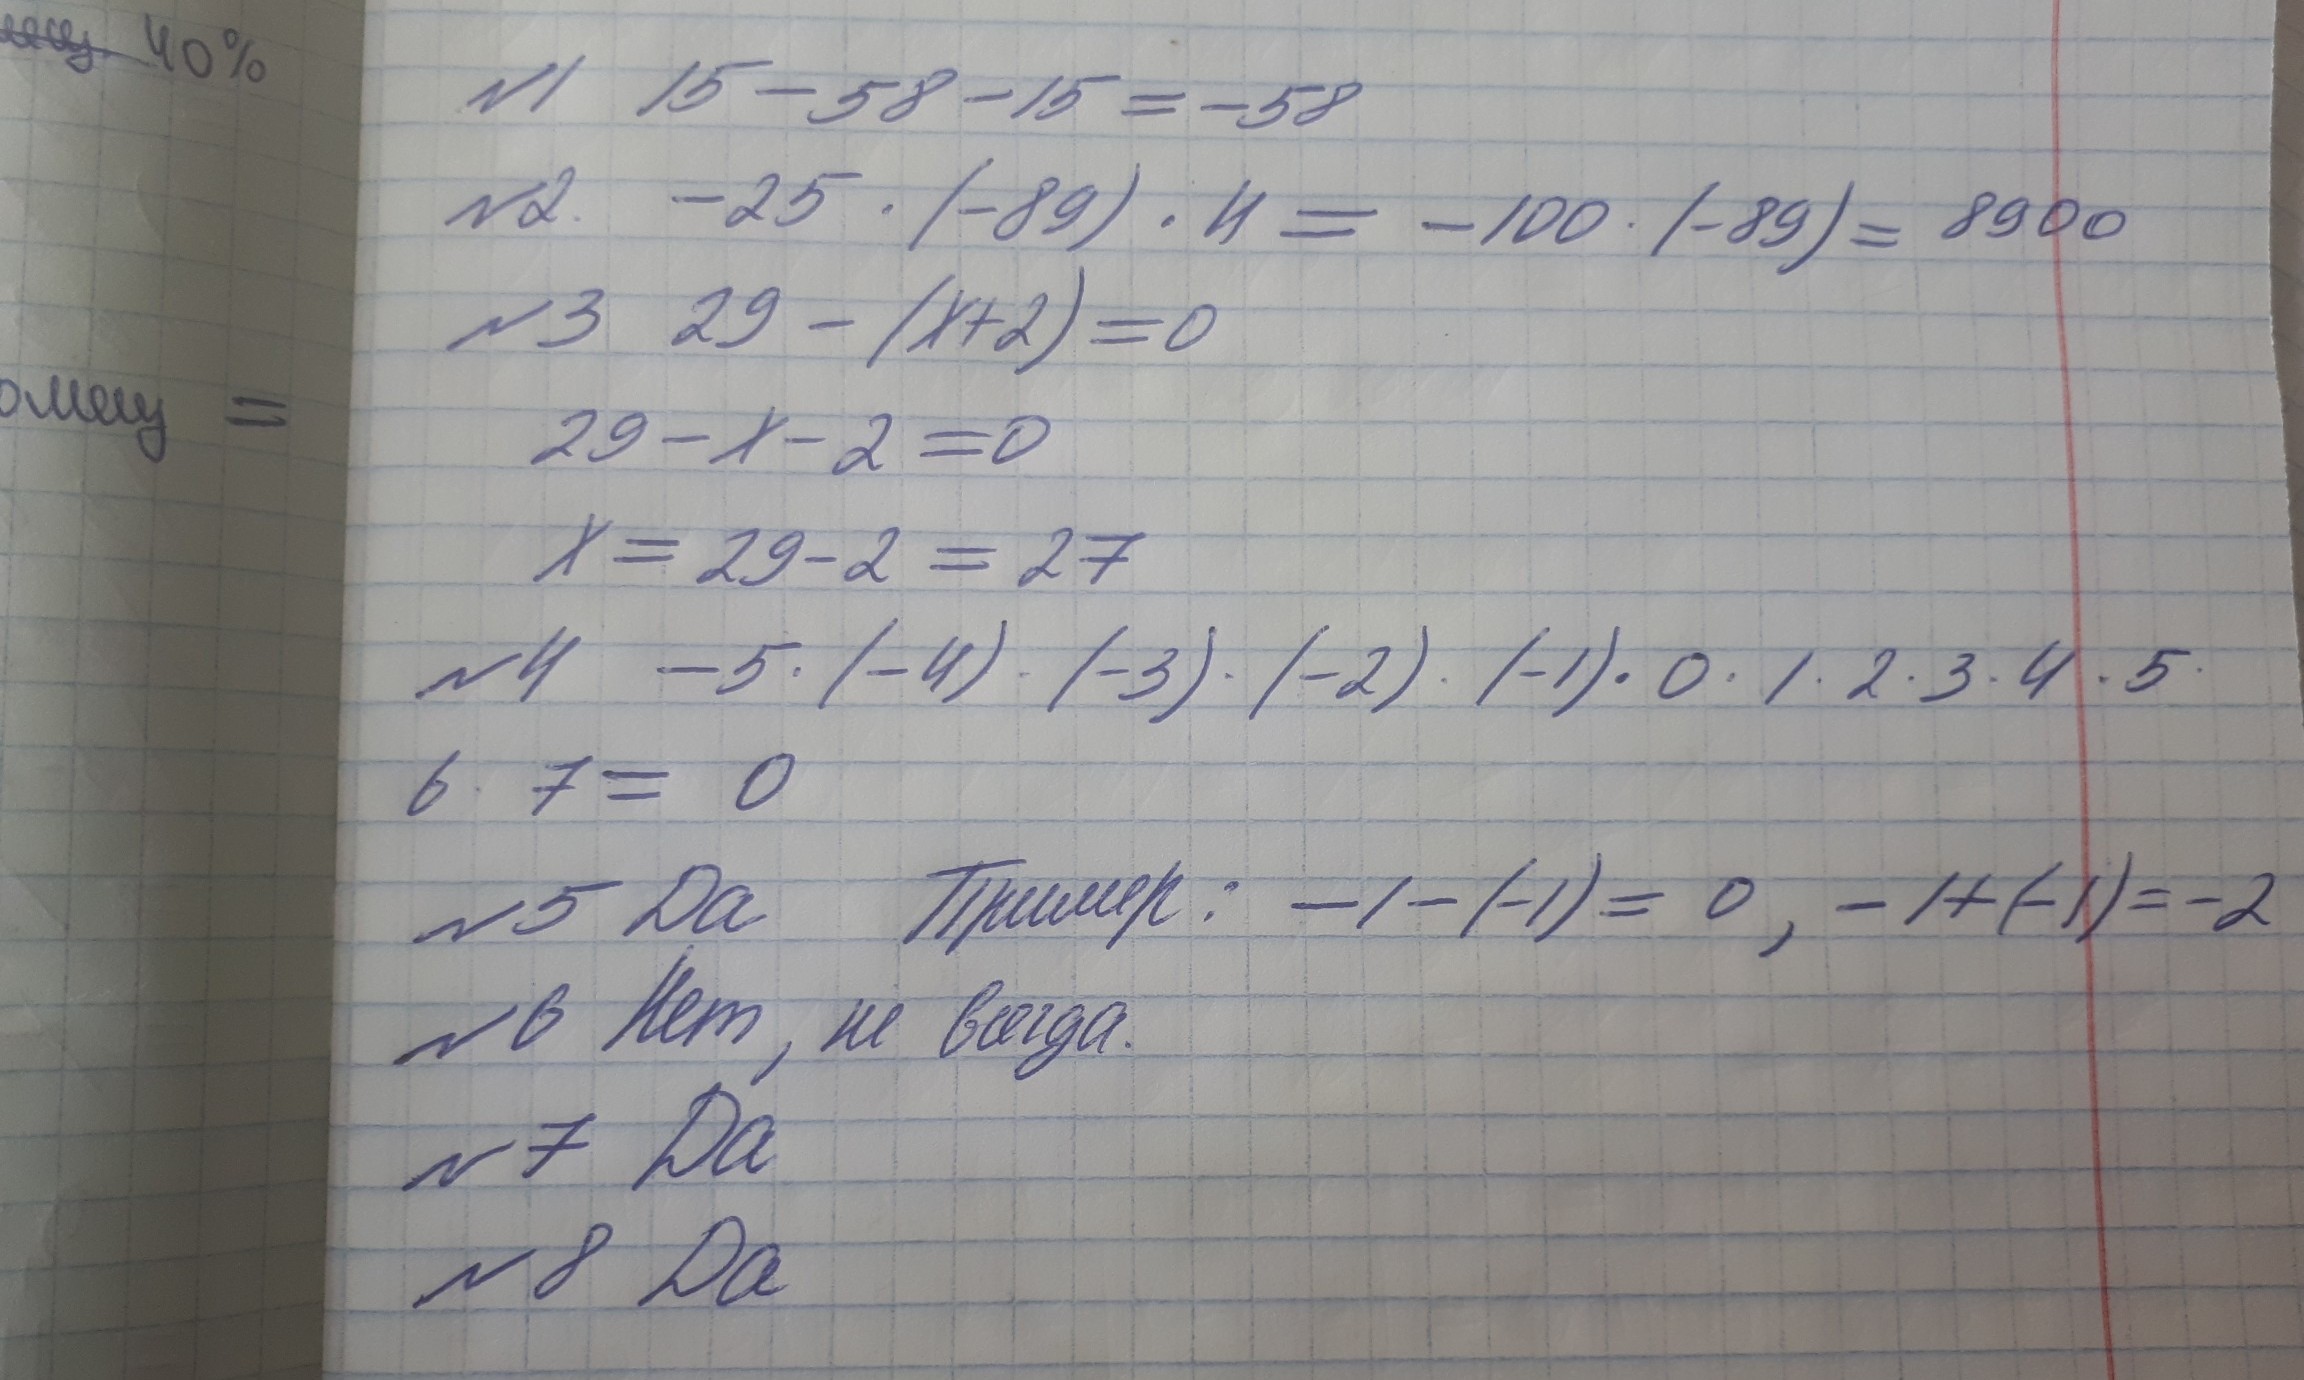 40%
=
№1 15 - 58 - 15 = -58
№2. -25 · (-89) · 4 = -100 · (-89) = 8900
№3 29 - (x+2) = 0
29 - x - 2 = 0
x = 29 - 2 = 27
№4 -5 · (-4) · (-3) · (-2) · (-1) · 0 · 1 · 2 · 3 · 4 · 5 ·
6 · 7 = 0
№5 Да Пример: -1 - (-1) = 0, -1 + (-1) = -2
№6 Нет, не всегда.
№7 Да
№8 Да